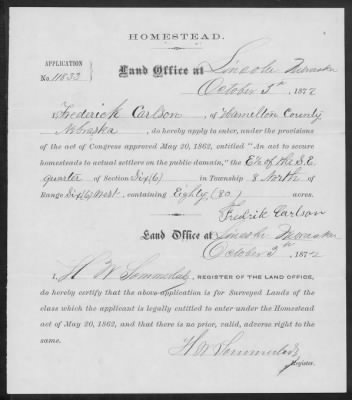 HOMESTEAD.
APPLICATION
No. 11833
Land Office at Lincoln Nebraska
October 3rd 1872
I, Frederick Carlson, of Hamilton County
Nebraska, do hereby apply to enter, under the provisions
of the act of Congress approved May 20, 1862, entitled "An act to secure
homesteads to actual settlers on the public domain," the E½ of the S.E.
quarter of Section Six (6) in Township 8 North of
Range Six (6) West, containing Eighty (80) acres.
Fredrik Carlson
Land Office at Lincoln Nebraska
October 3 1872
I, H W Sommerlad, REGISTER OF THE LAND OFFICE,
do hereby certify that the above application is for Surveyed Lands of the
class which the applicant is legally entitled to enter under the Homestead
act of May 20, 1862, and that there is no prior, valid, adverse right to the
same.
H W Sommerlad
Register.